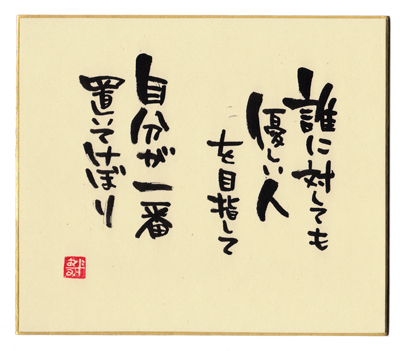 誰に対しても
優しい人
を目指して
自分が一番
置いてけぼり